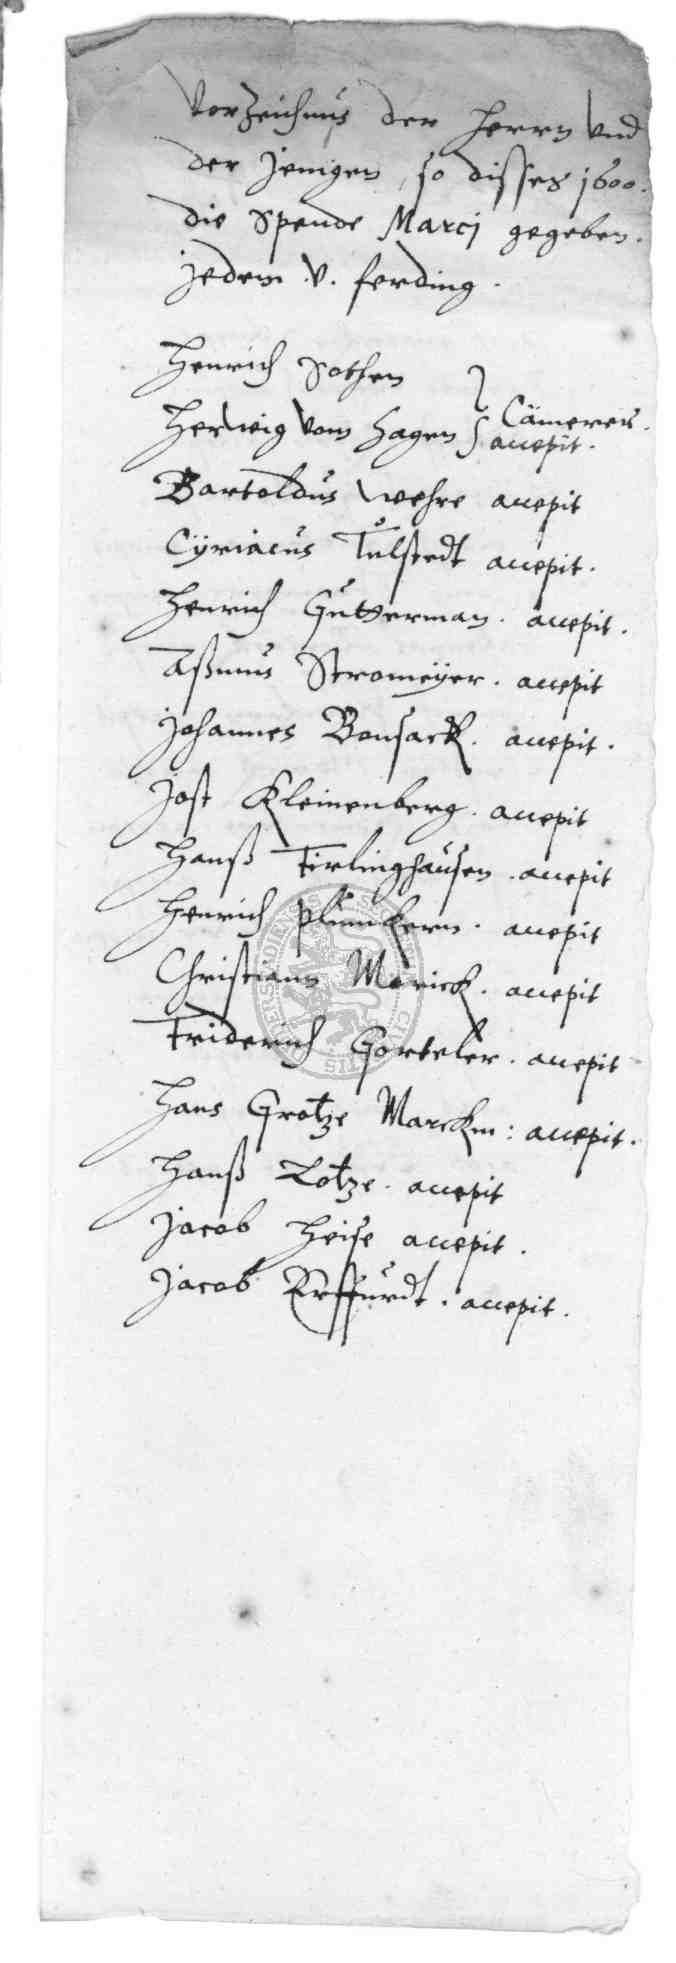 Vorzeichnus der Herrn vnd
der jenigen, so disses 1600.
die Spende Marcj gegeben.
jedem v. ferding.
Henrich Sothen
Herwig vom Hagen } Cämerer.
accepit.
Bartoldus Wehre accepit
Cÿriacus Tulstedt accepit.
Henrich Gutterman. accepit.
Aßmus Stromeÿer. accepit
Johannes Bonsack. accepit.
Jost Kleinenberg. accepit
Hanß Firlinghausen. accepit
Henrich Plunckern. accepit
Christiann Marick. accepit
Friderich Gorteler. accepit
Hans Grotze Marckm: accepit.
Hanß Lotze. accepit
Jacob Heise accepit.
Jacob Erffurdt. accepit.